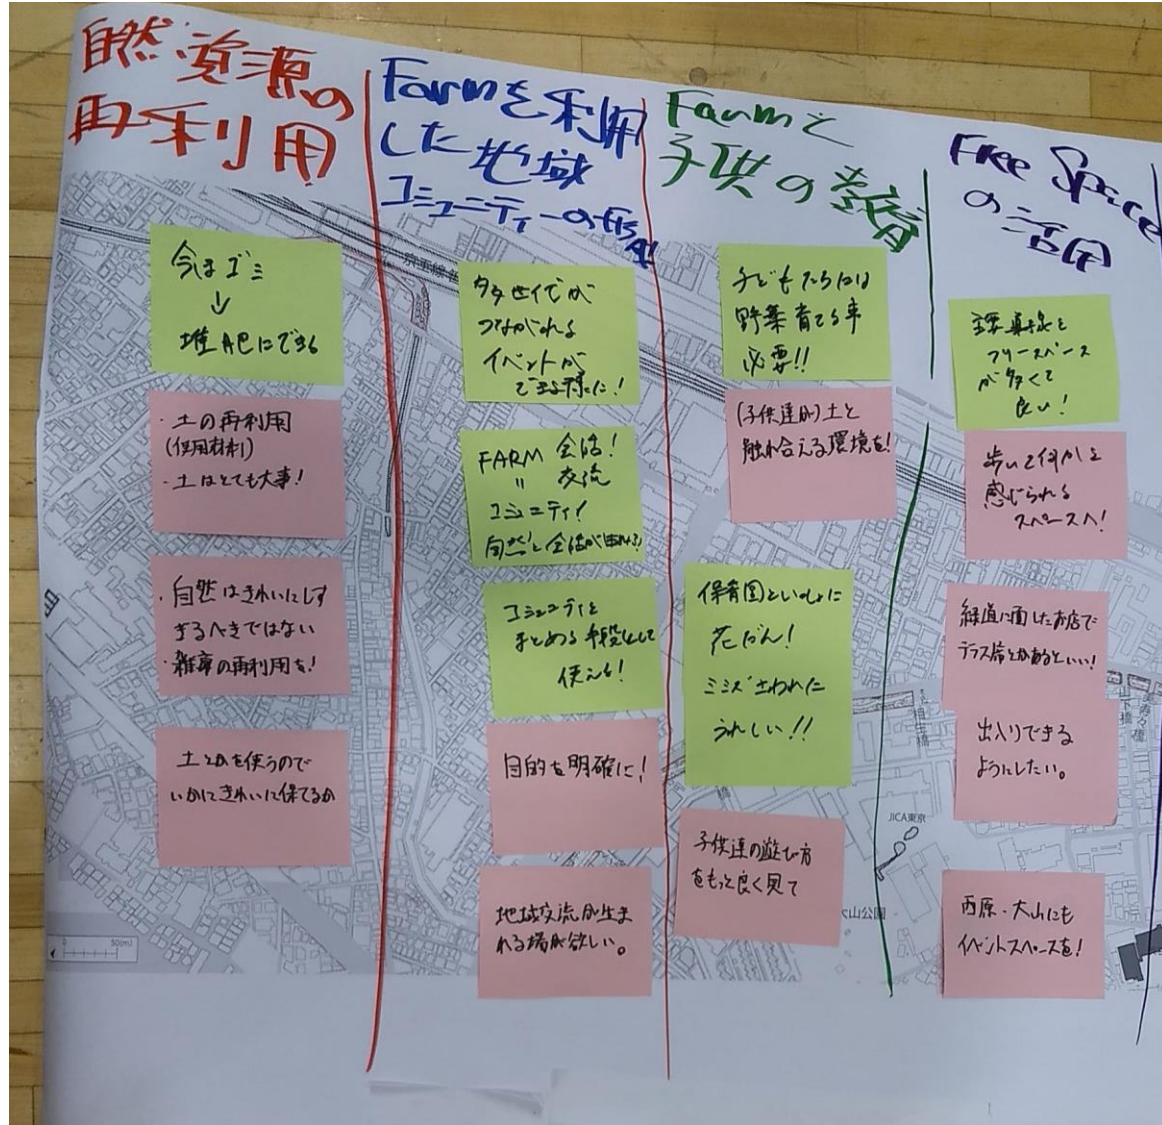 自然資源の
再利用
今はゴミ
↓
堆肥にできる
・土の再利用
(使用材料)
・土はとても大事!
・自然はきれいにしす
ぎるべきではない
・雑草の再利用を!
土とかを使うので
いかにきれいに保てるか
Farmを利用
した地域
コミュニティーの形成!
多世代が
つながれる
イベントが
できる様に!
FARM 会話!
〃 交流
コミュニティ!
自然と会話が
コミュニティを
まとめる手段として
使える!
目的を明確に!
地域交流が生ま
れる場が欲しい。
Farmと
子供の教育
子どもたちには
野菜育てる事
必要!!
(子供達が)土と
触れ合える環境を!
保育園といっしょに
花だん!
ミミズさわれに
うれしい!!
子供達の遊び方
をもっと良く見て
Free Spaceの活用
フリースペース
が多くて
良い!
歩いて何かを
感じられる
スペースへ!
緑道に面したお店で
テラス席とかあるといい!
出入りできる
ようにしたい。
西原・大山にも
イベントスペースを!
京王線
相生橋
山下橋
JICA東京
大山公園
0 50(m)